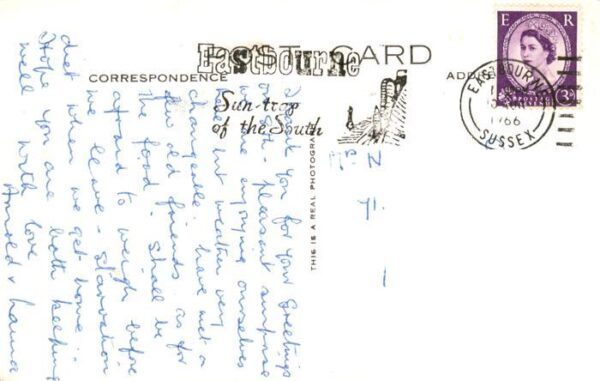 POST CARD
Eastbourne
Sun-trap
of the South
CORRESPONDENCE
ADD
E R
POSTAGE
3D
EASTBOURNE
1966
SUSSEX
THIS IS A REAL PHOTOGRA
Thank you for your Greetings
pleasant surprise
we are enjoying ourselves
here but weather very
changeable. have met a
few old friends. as for
the food - shall be
afraid to weigh before
we leave - starvation
diet when we get home.
Hope you are both keeping
well with love
Arnold &
Mr N